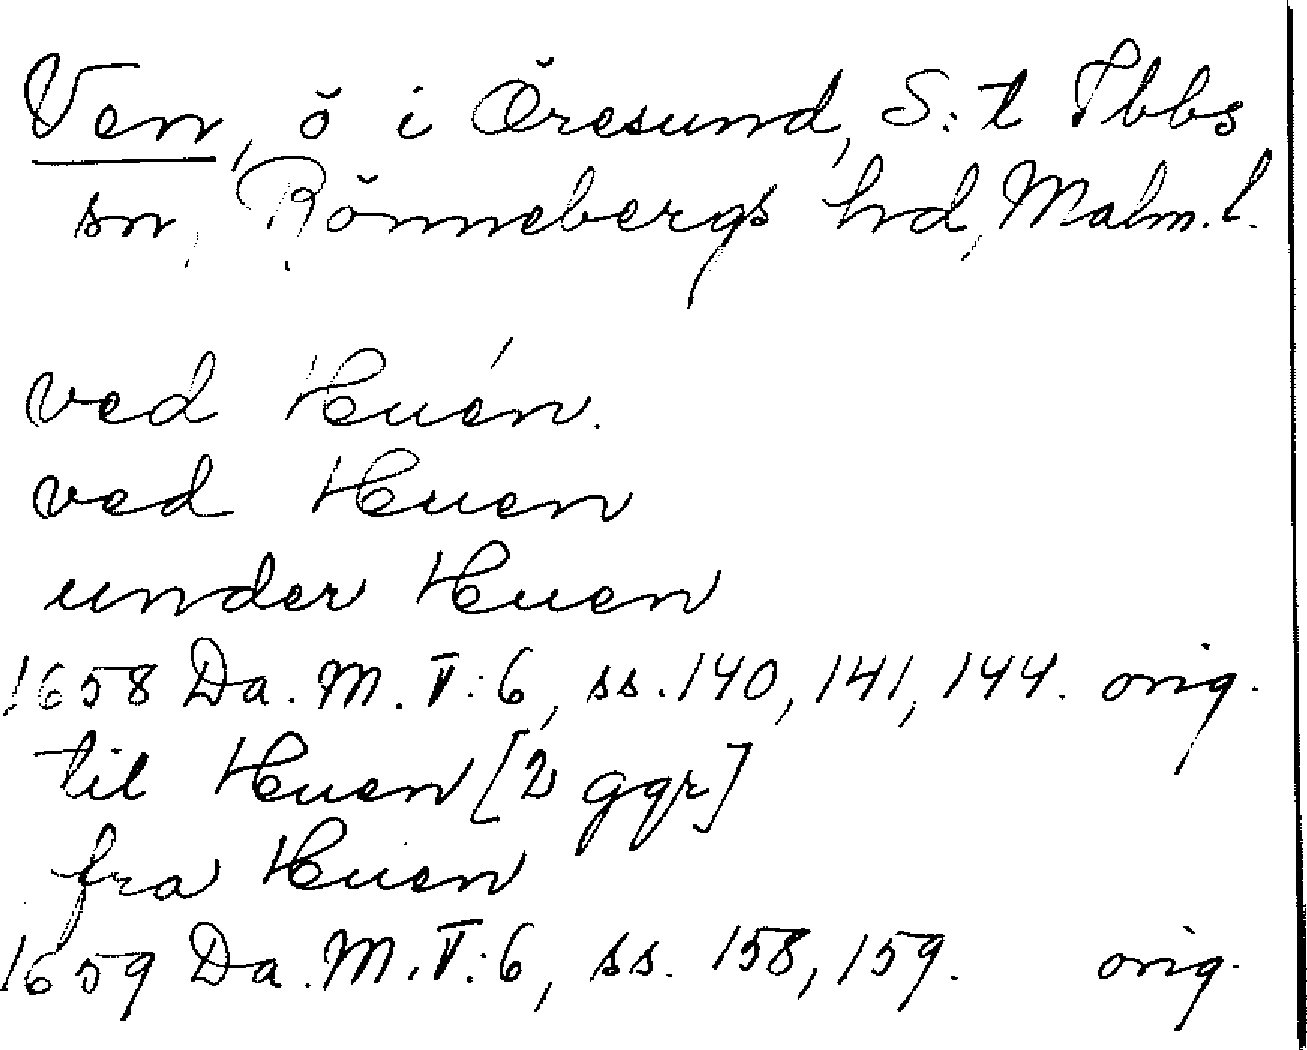 Ven, ö i Öresund, S:t Ibbs
sn, Rönnebergs hd, Malm.l.
ved Huén.
ved Huen
under Huen
1658 Da. M. V:6, ss. 140, 141, 144. orig.
til Huen [2 ggr]
fra Huen
1659 Da. M. V:6, ss. 158, 159. orig.